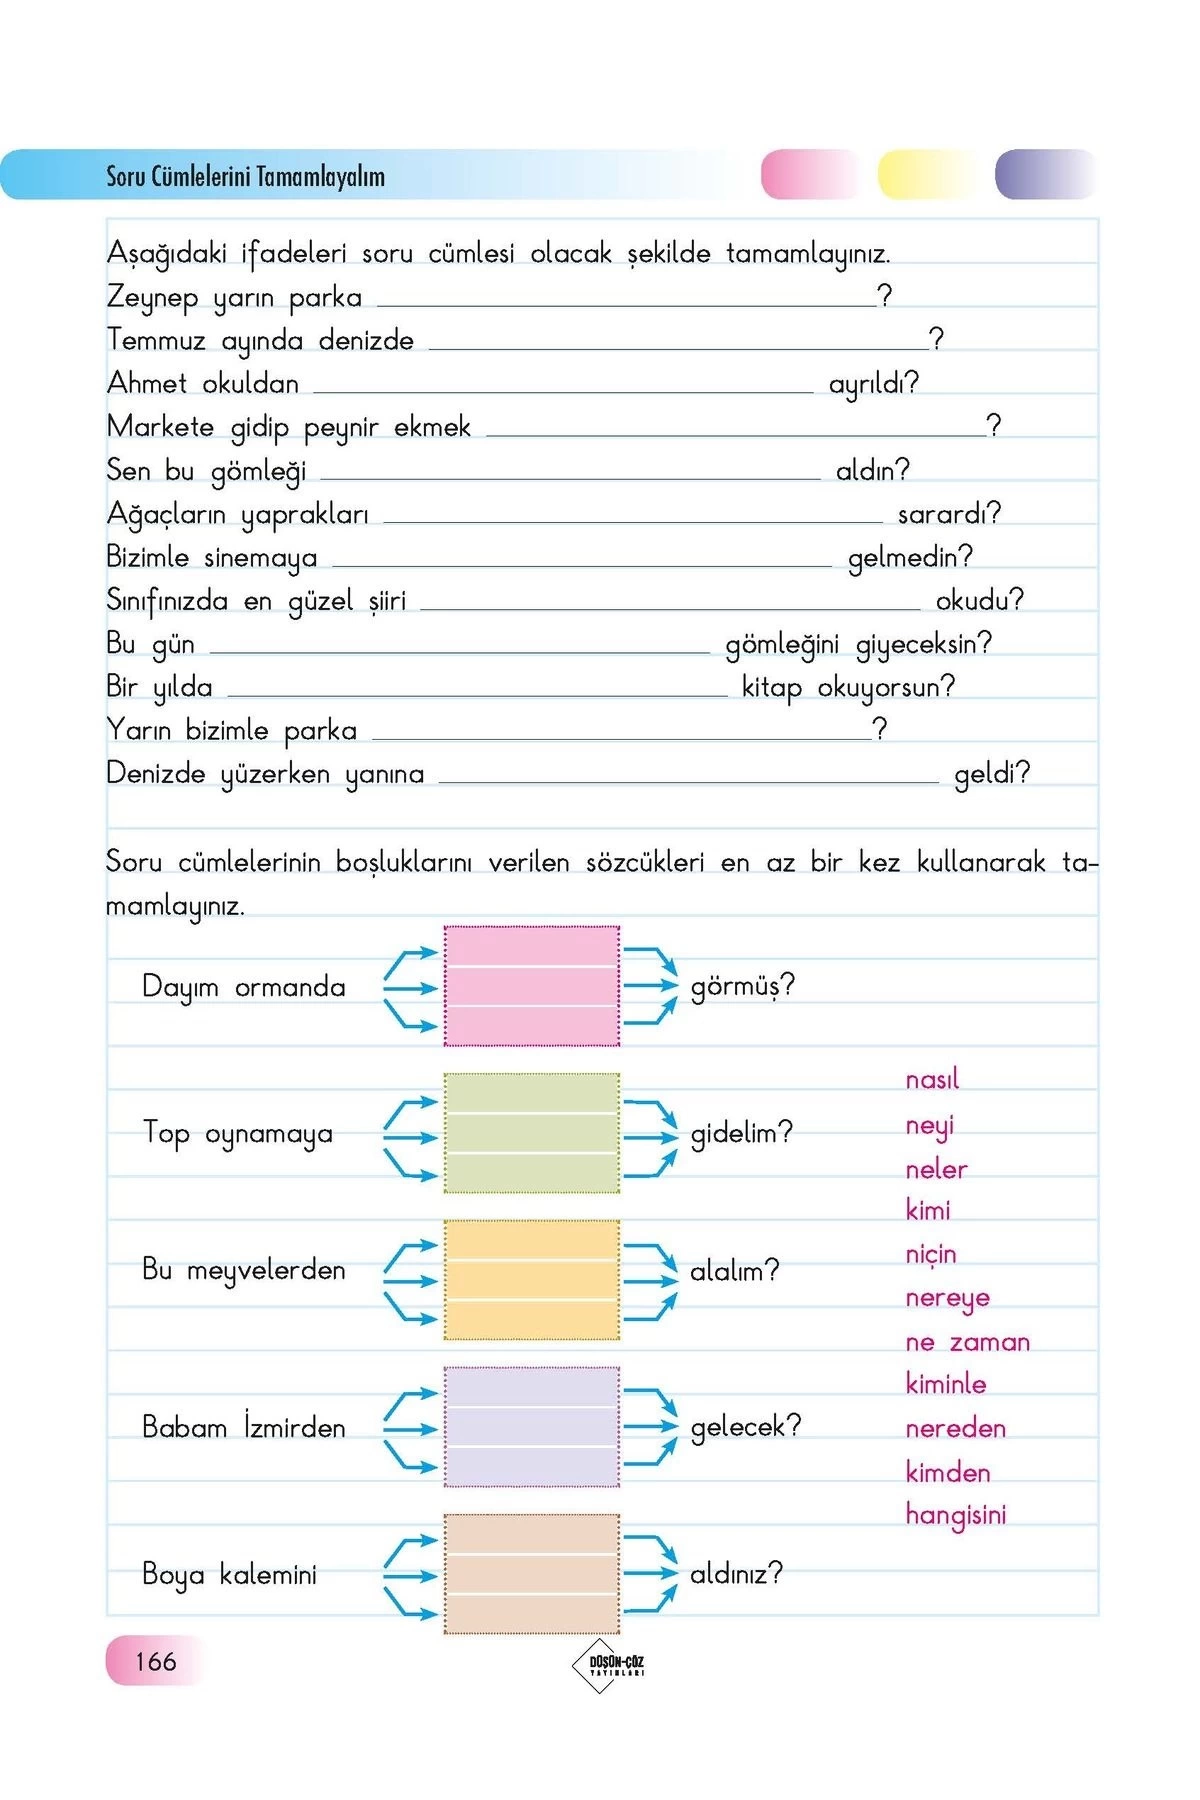 Soru Cümlelerini Tamamlayalım
Aşağıdaki ifadeleri soru cümlesi olacak şekilde tamamlayınız.
Zeynep yarın parka ?
Temmuz ayında denizde ?
Ahmet okuldan ayrıldı?
Markete gidip peynir ekmek ?
Sen bu gömleği aldın?
Ağaçların yaprakları sarardı?
Bizimle sinemaya gelmedin?
Sınıfınızda en güzel şiiri okudu?
Bu gün gömleğini giyeceksin?
Bir yılda kitap okuyorsun?
Yarın bizimle parka ?
Denizde yüzerken yanına geldi?
Soru cümlelerinin boşluklarını verilen sözcükleri en az bir kez kullanarak ta-
mamlayınız.
Dayım ormanda görmüş?
Top oynamaya gidelim?
Bu meyvelerden alalım?
Babam İzmirden gelecek?
Boya kalemini aldınız?
nasıl
neyi
neler
kimi
niçin
nereye
ne zaman
kiminle
nereden
kimden
hangisini
166
DÜŞÜN-ÇÖZ
YAYINLARI